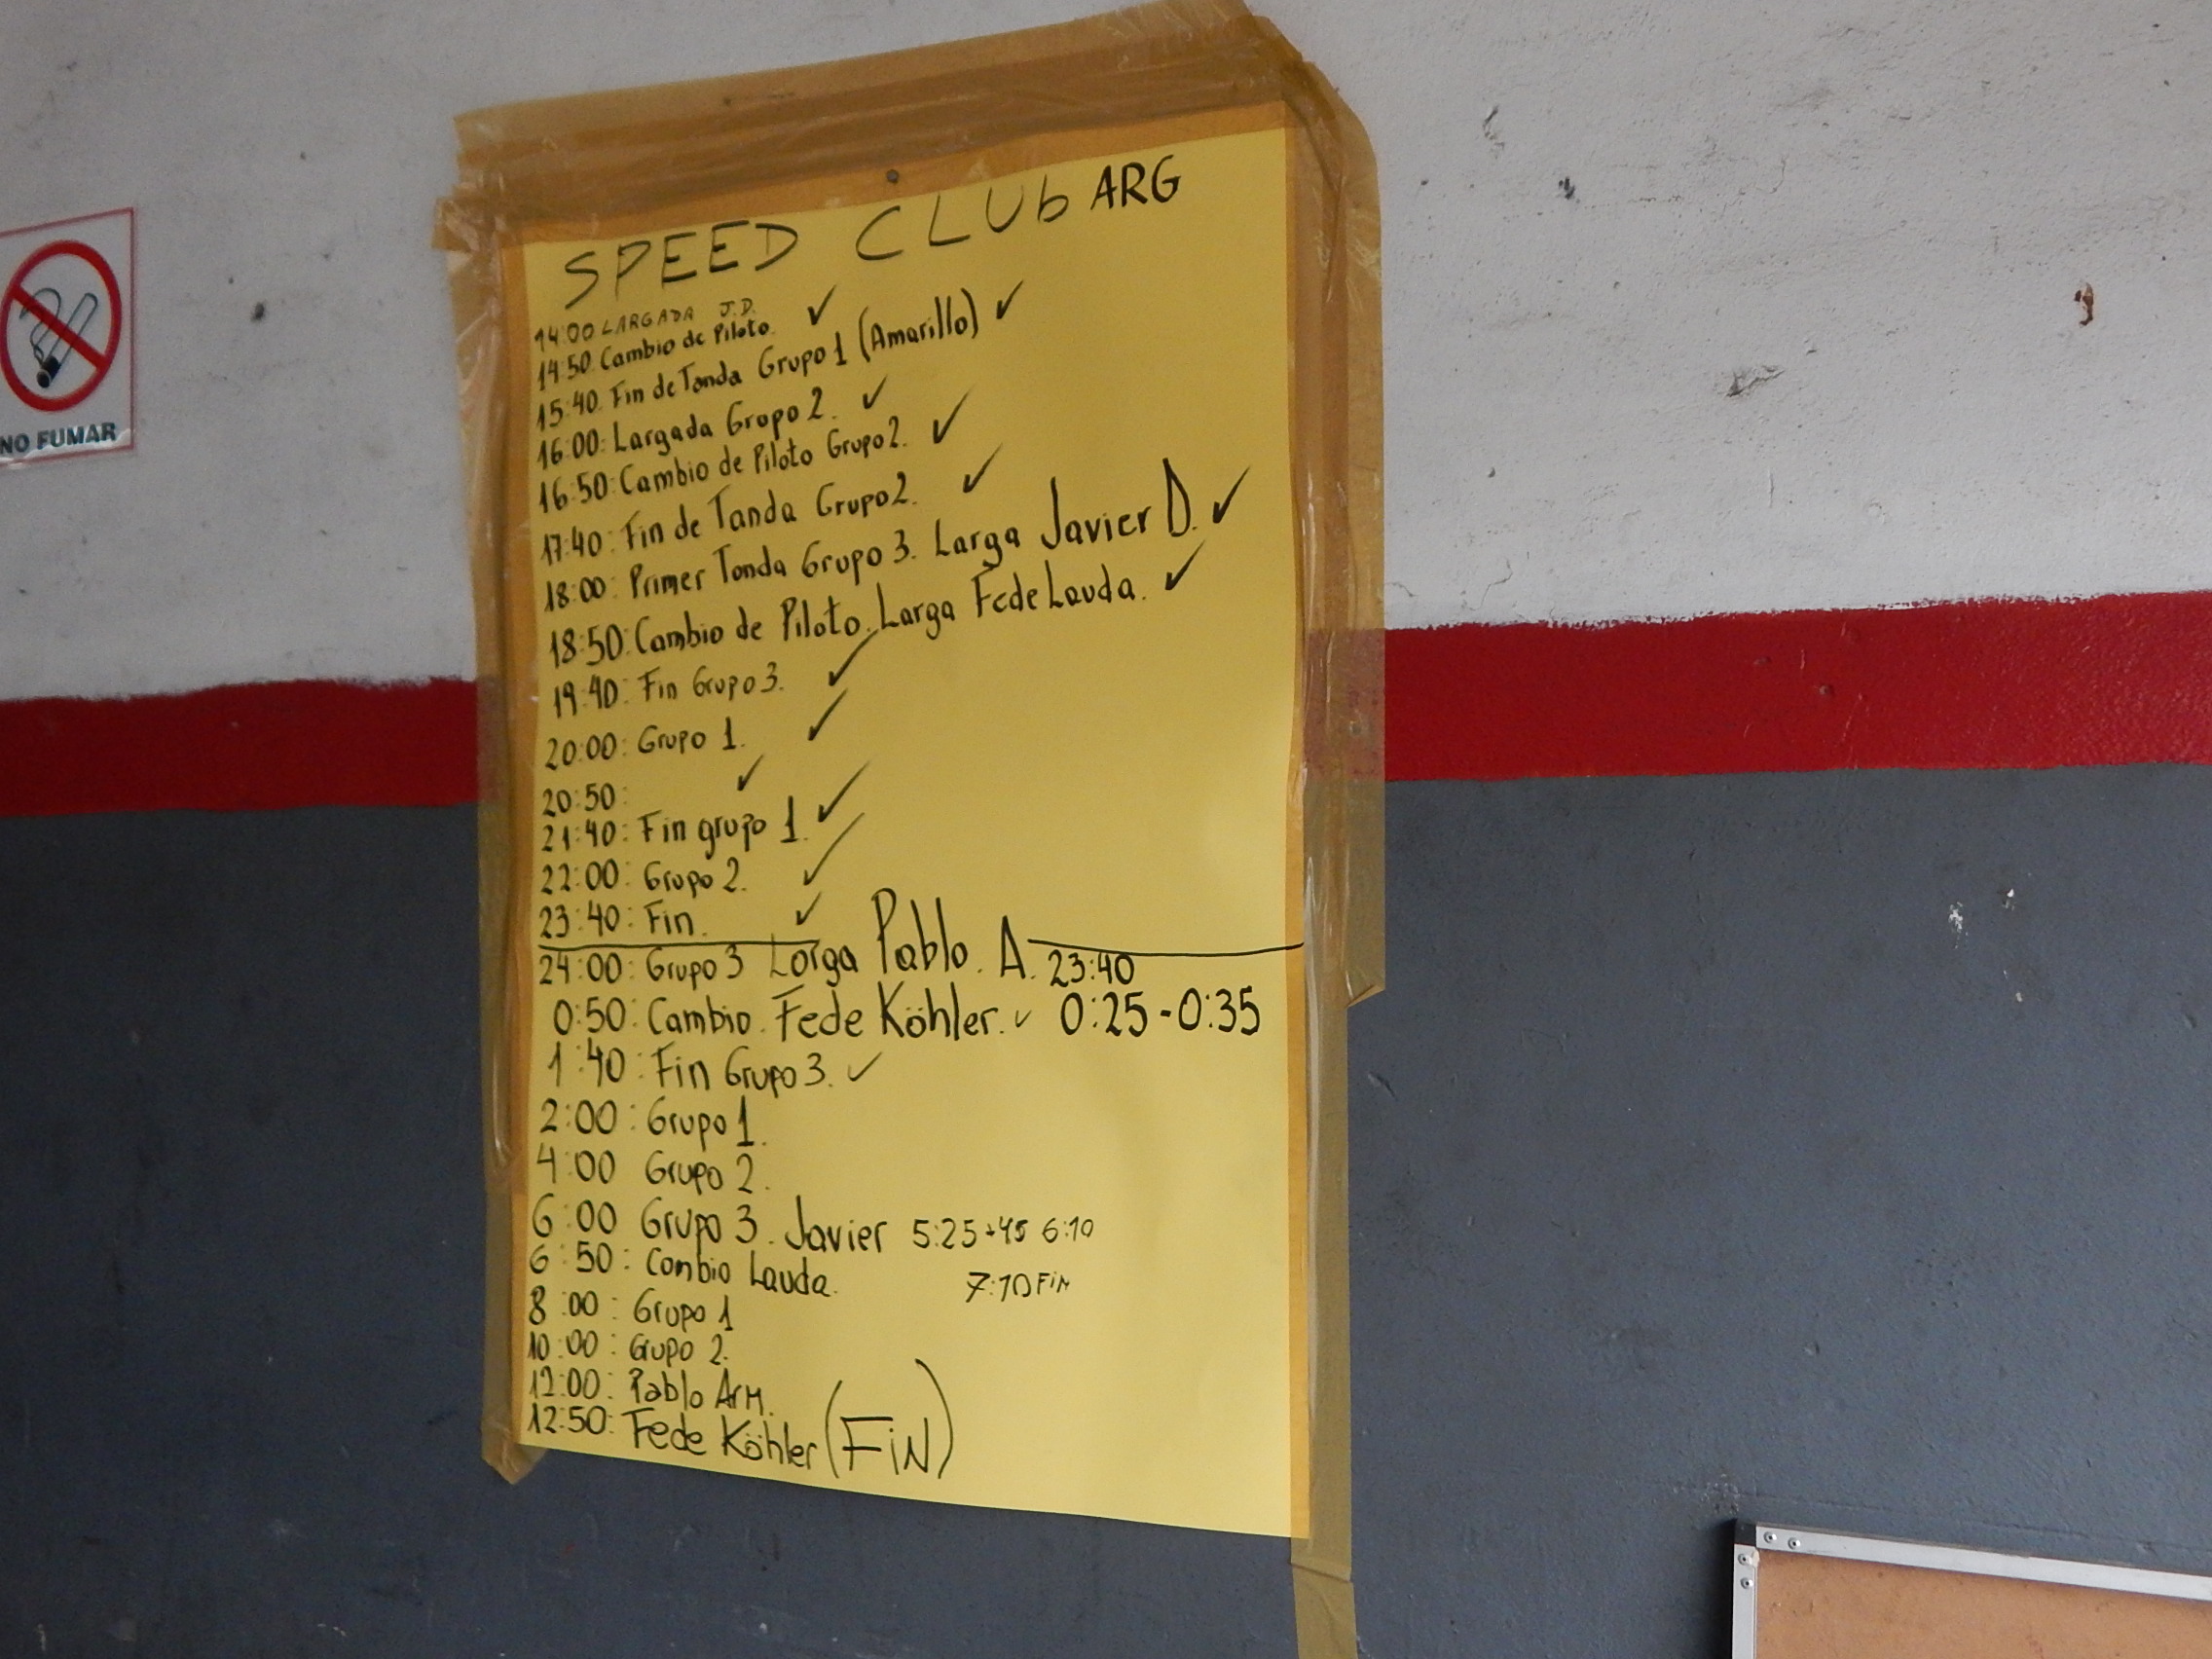 NO FUMAR
SPEED CLUb ARG
14:00 LARGADA J.D.
14:50 Cambio de Piloto. ✓
15:40. Fin de Tanda Grupo 1 (Amarillo) ✓
16:00: Largada Grupo 2. ✓
16:50: Cambio de Piloto Grupo 2. ✓
17:40: Fin de Tanda Grupo 2. ✓
18:00: Primer Tanda Grupo 3. Larga Javier D. ✓
18:50: Cambio de Piloto. Larga Fede Lauda. ✓
19:40: Fin Grupo 3. ✓
20:00: Grupo 1. ✓
20:50: ✓
21:40: Fin grupo 1. ✓
22:00: Grupo 2. ✓
23:40: Fin. ✓
24:00: Grupo 3 Larga Pablo. A. 23:40
0:50: Cambio. Fede Köhler. ✓ 0:25-0:35
1:40: Fin Grupo 3. ✓
2:00: Grupo 1.
4:00 Grupo 2.
6:00 Grupo 3. Javier 5:25+45 6:10
6:50: Cambio Lauda. 7:10 FiN
8:00: Grupo 1
10:00: Grupo 2.
12:00: Pablo Arm.
12:50: Fede Köhler (FiN)